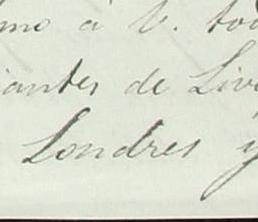 mo á V. tod
iantes de Liv
Londres y